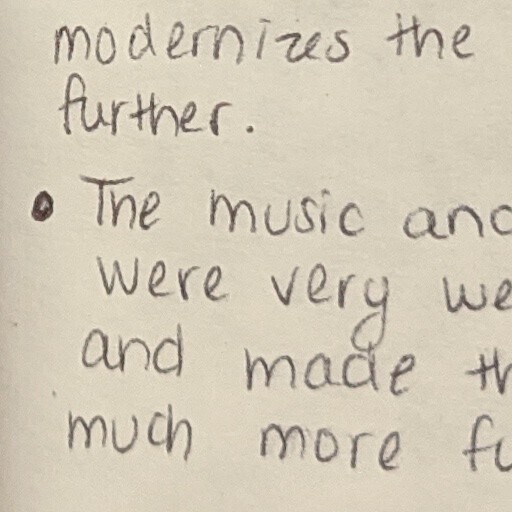 modernizes the
further.
• The music and
were very we
and made th
much more fu